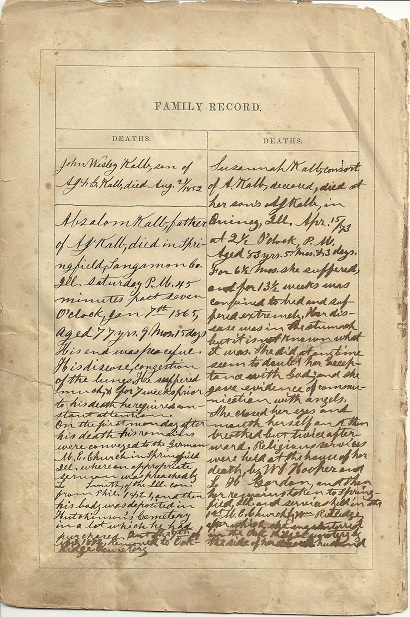 FAMILY RECORD.
DEATHS.
John Wesley Kalb, son of
A J & S. Kalb, died Aug. 1852
Absalom Kalb, father
of A J Kalb, died in Spri-
ngfield, Sangamon Co.
Ill. Saturday P.M. 45
minutes past seven
O'clock, Jan 7th 1865,
Aged 77 yrs. 9 mos. 15 days
His end was peaceful.
His disease, congestion
of the lungs. He suffered
much, & for 7 weeks prior
to his death he required con-
stant attention.
On the first monday after
his death his remains
were conveyed to the German
M. E. Church in Springfield
Ill., where an appropriate
sermon was preached by
L. Smith, of the Ill. con
from Phil 1 & 21, and then
his body was deposited in
Hutchinson's Cemetery
in a lot which he had
purchased.
removed to Oak
Ridge Cemetery
DEATHS.
Susannah Kalb, consort
of A. Kalb, deceased, died at
her son's A J Kalb, in
Quincy, Ill. Apr. 15/73
at 2½ O'clock, P. M.
Aged 83 yrs. 5 mos. & 3 days.
For 6½ mos. she suffered,
and for 13½ weeks was
confined to bed and suf-
fered extremely. Her dis-
ease was in the stomach
but it is not known what
it was. She did at no time
seem to doubt her accep-
tance with God, and she
gave evidence of commu-
nication with angels.
She closed her eyes and
mouth herself and then
breathed but twice after-
ward. Religious services
were held at the house of her
death, by W S Hooper and
L H Gordon, and then
her remains taken to Spring-
field, Ill. and services held in the
M. E. Church, by Rutledge
after which she was interred
in the Oak Ridge Cemetery
the side of her husband